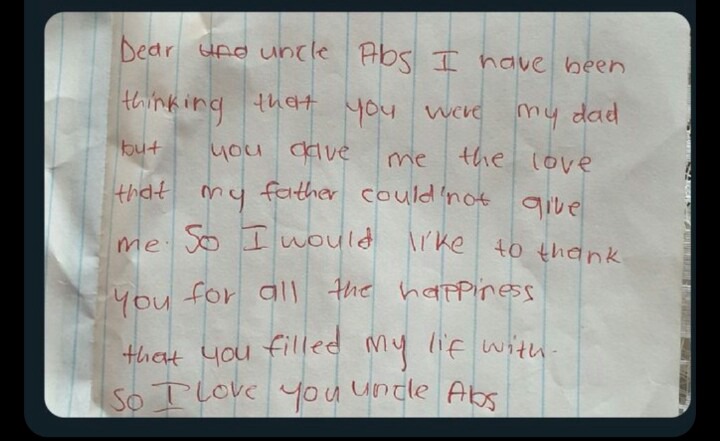 Dear uncle Abs I have been
thinking that you were my dad
but you gave me the love
that my father could'not give
me. So I would like to thank
you for all the happiness
that you filled my lif with.
so I Love you uncle Abs